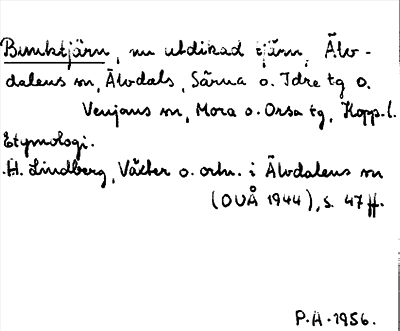 Bunktjärn, nu utdikad tjärn, Älv-
dalens sn, Älvdals, Särna o. Idre tg o.
Venjans sn, Mora o. Orsa tg, Kopp.l.
Etymologi.
H. Lindberg, Växter o. ortn. i Älvdalens sn
(OUÅ 1944), s. 47 ff.
P.A. 1956.